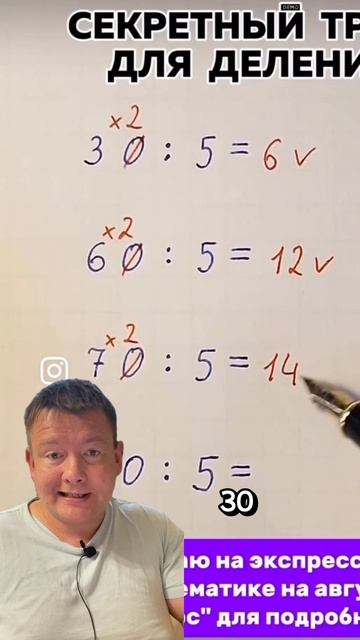 DEMO
СЕКРЕТНЫЙ ТР
ДЛЯ ДЕЛЕНИ
x2
30 : 5 = 6 v
x2
60 : 5 = 12 v
x2
70 : 5 = 14
0 : 5 =
30
аю на экспресс
ематике на авгу
ос" для подробн